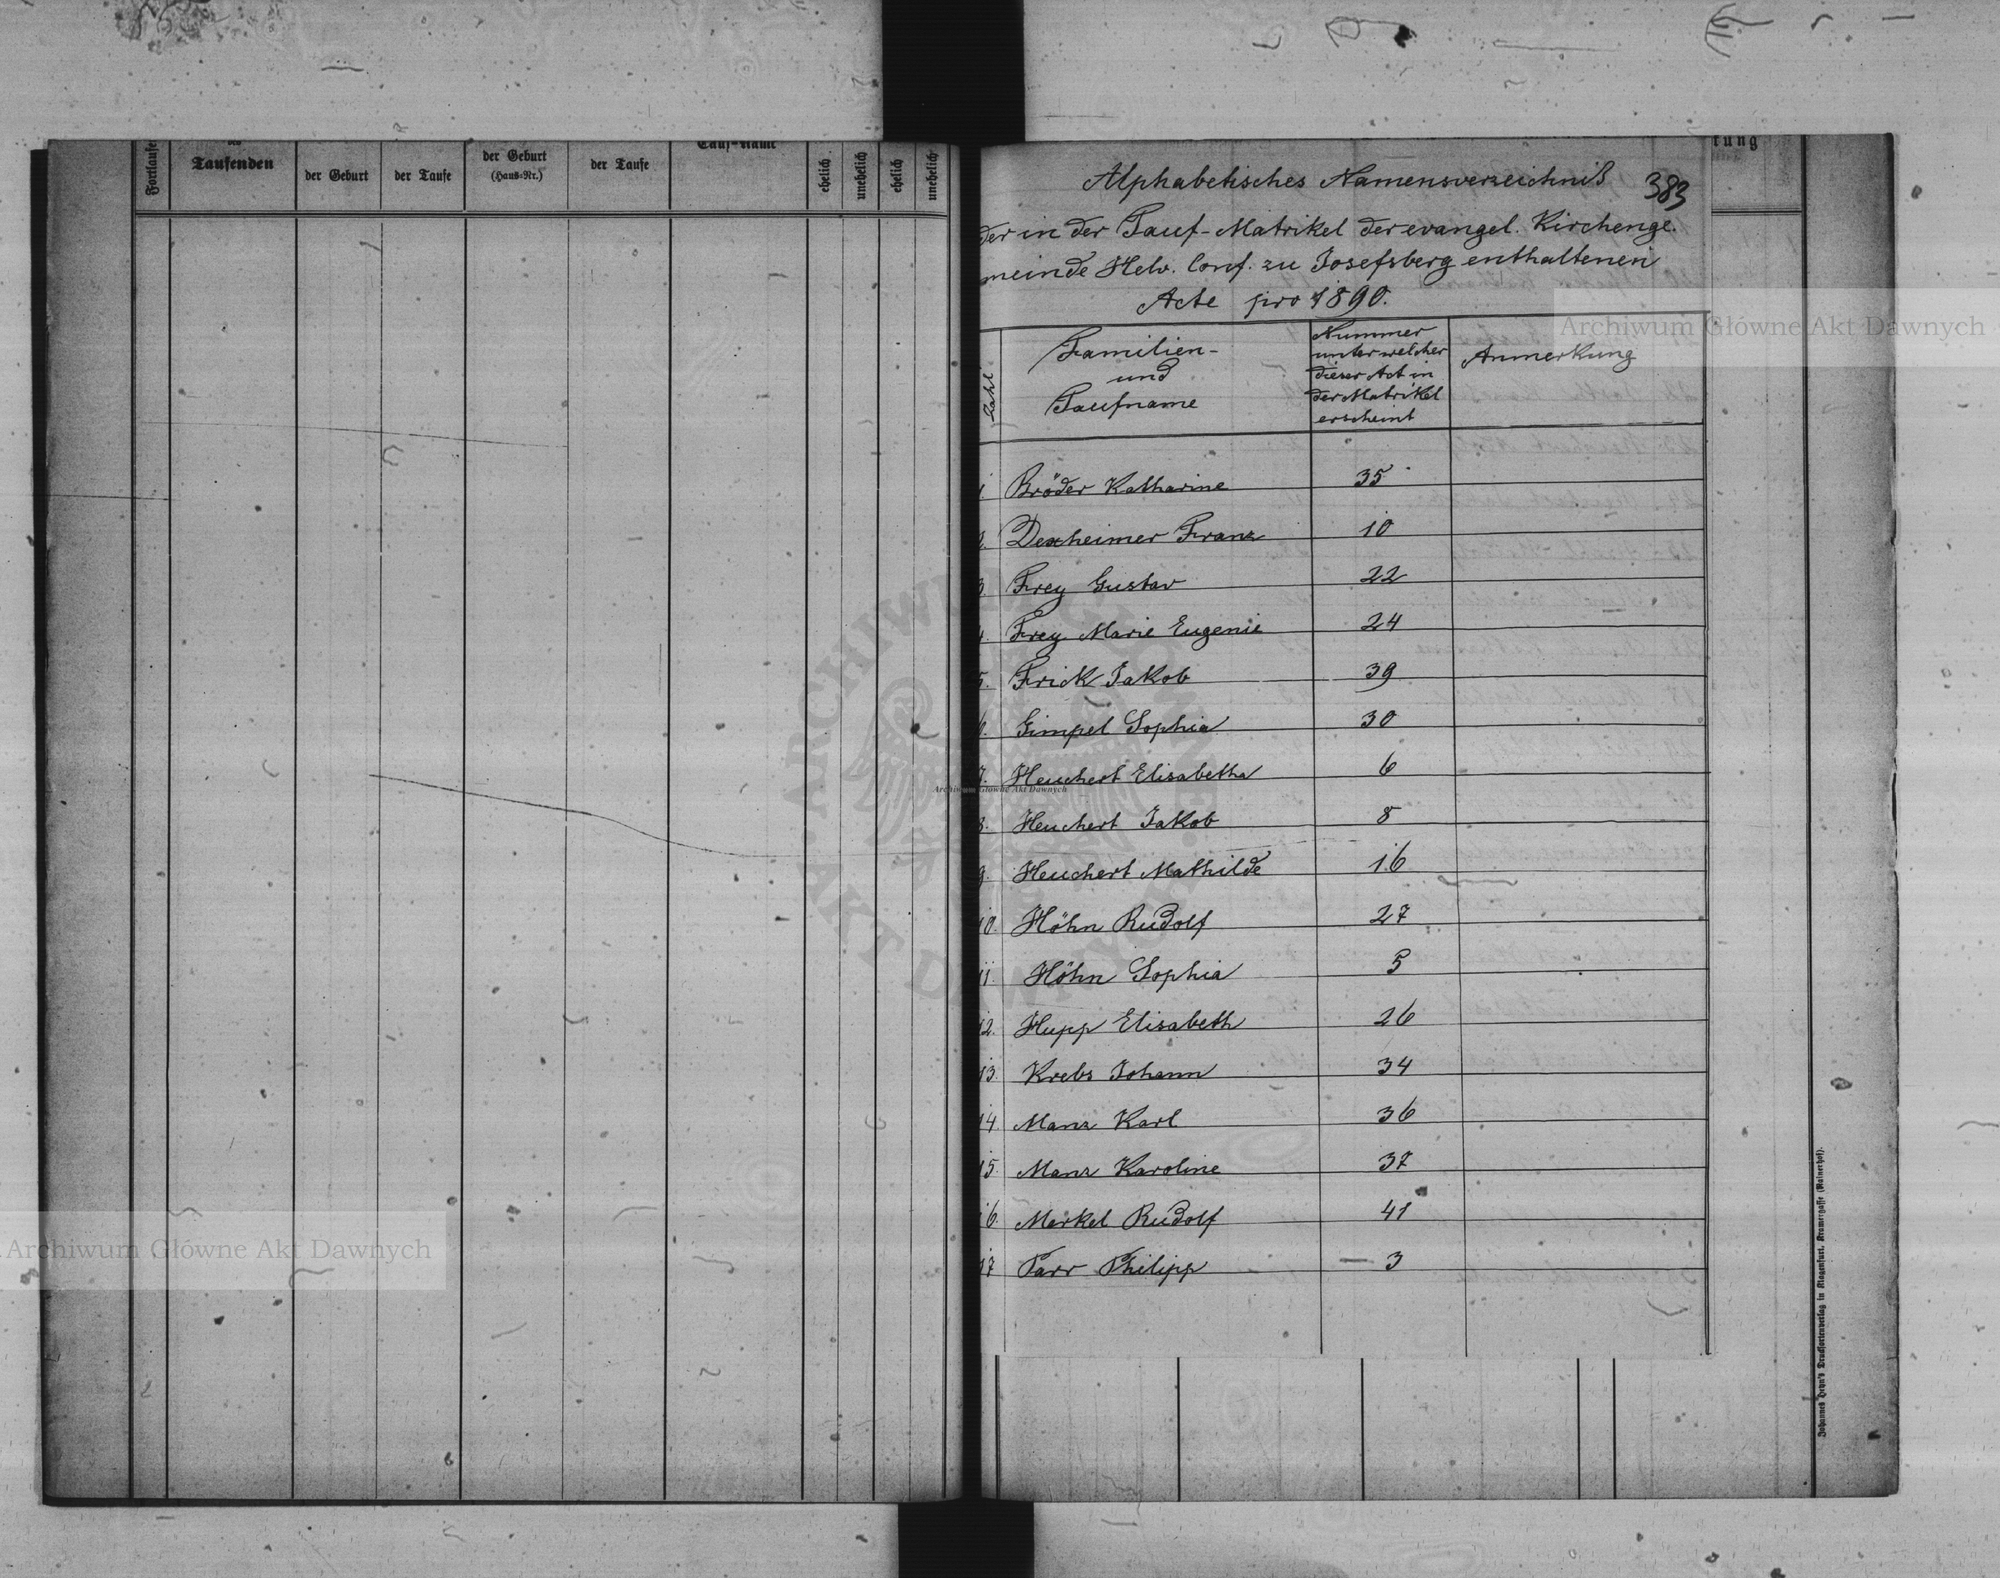 Fortlaufe
Taufenden
der Geburt
der Taufe
der Geburt
(Haus=Nr.)
der Taufe
Tauf=Name
ehelich
unehelich
ehelich
unehelich
Alphabetisches Namensverzeichniß 383
der in der Tauf-Matrikel der evangel. Kirchenge-
meinde Helv. Conf. zu Josefsberg enthaltenen
Acte pro 1890.
Zahl
Familien-
und
Taufname
Nummer
unter welcher
dieser Act in
der Matrikel
erscheint
Anmerkung
1. Bröder Katharine 35
2. Dexheimer Franz 10
3. Frey Gustav 22
4. Frey Marie Eugenie 24
5. Frick Jakob 39
6. Gimpel Sophia 30
7. Heuchert Elisabetha 6
8. Heuchert Jakob 8
9. Heuchert Mathilde 16
10. Höhn Rudolf 27
11. Höhn Sophia 5
12. Hupp Elisabeth 26
13. Krebs Johann 34
14. Manz Karl 36
15. Manz Karoline 37
16. Merkel Rudolf 41
17. Parr Philipp — 3
Johannes Heyn's Drucksortenverlag in Klagenfurt, Kramergasse (Rainerhof).
Archiwum Główne Akt Dawnych
Archiwum Główne Akt Dawnych
Archiwum Główne Akt Dawnych